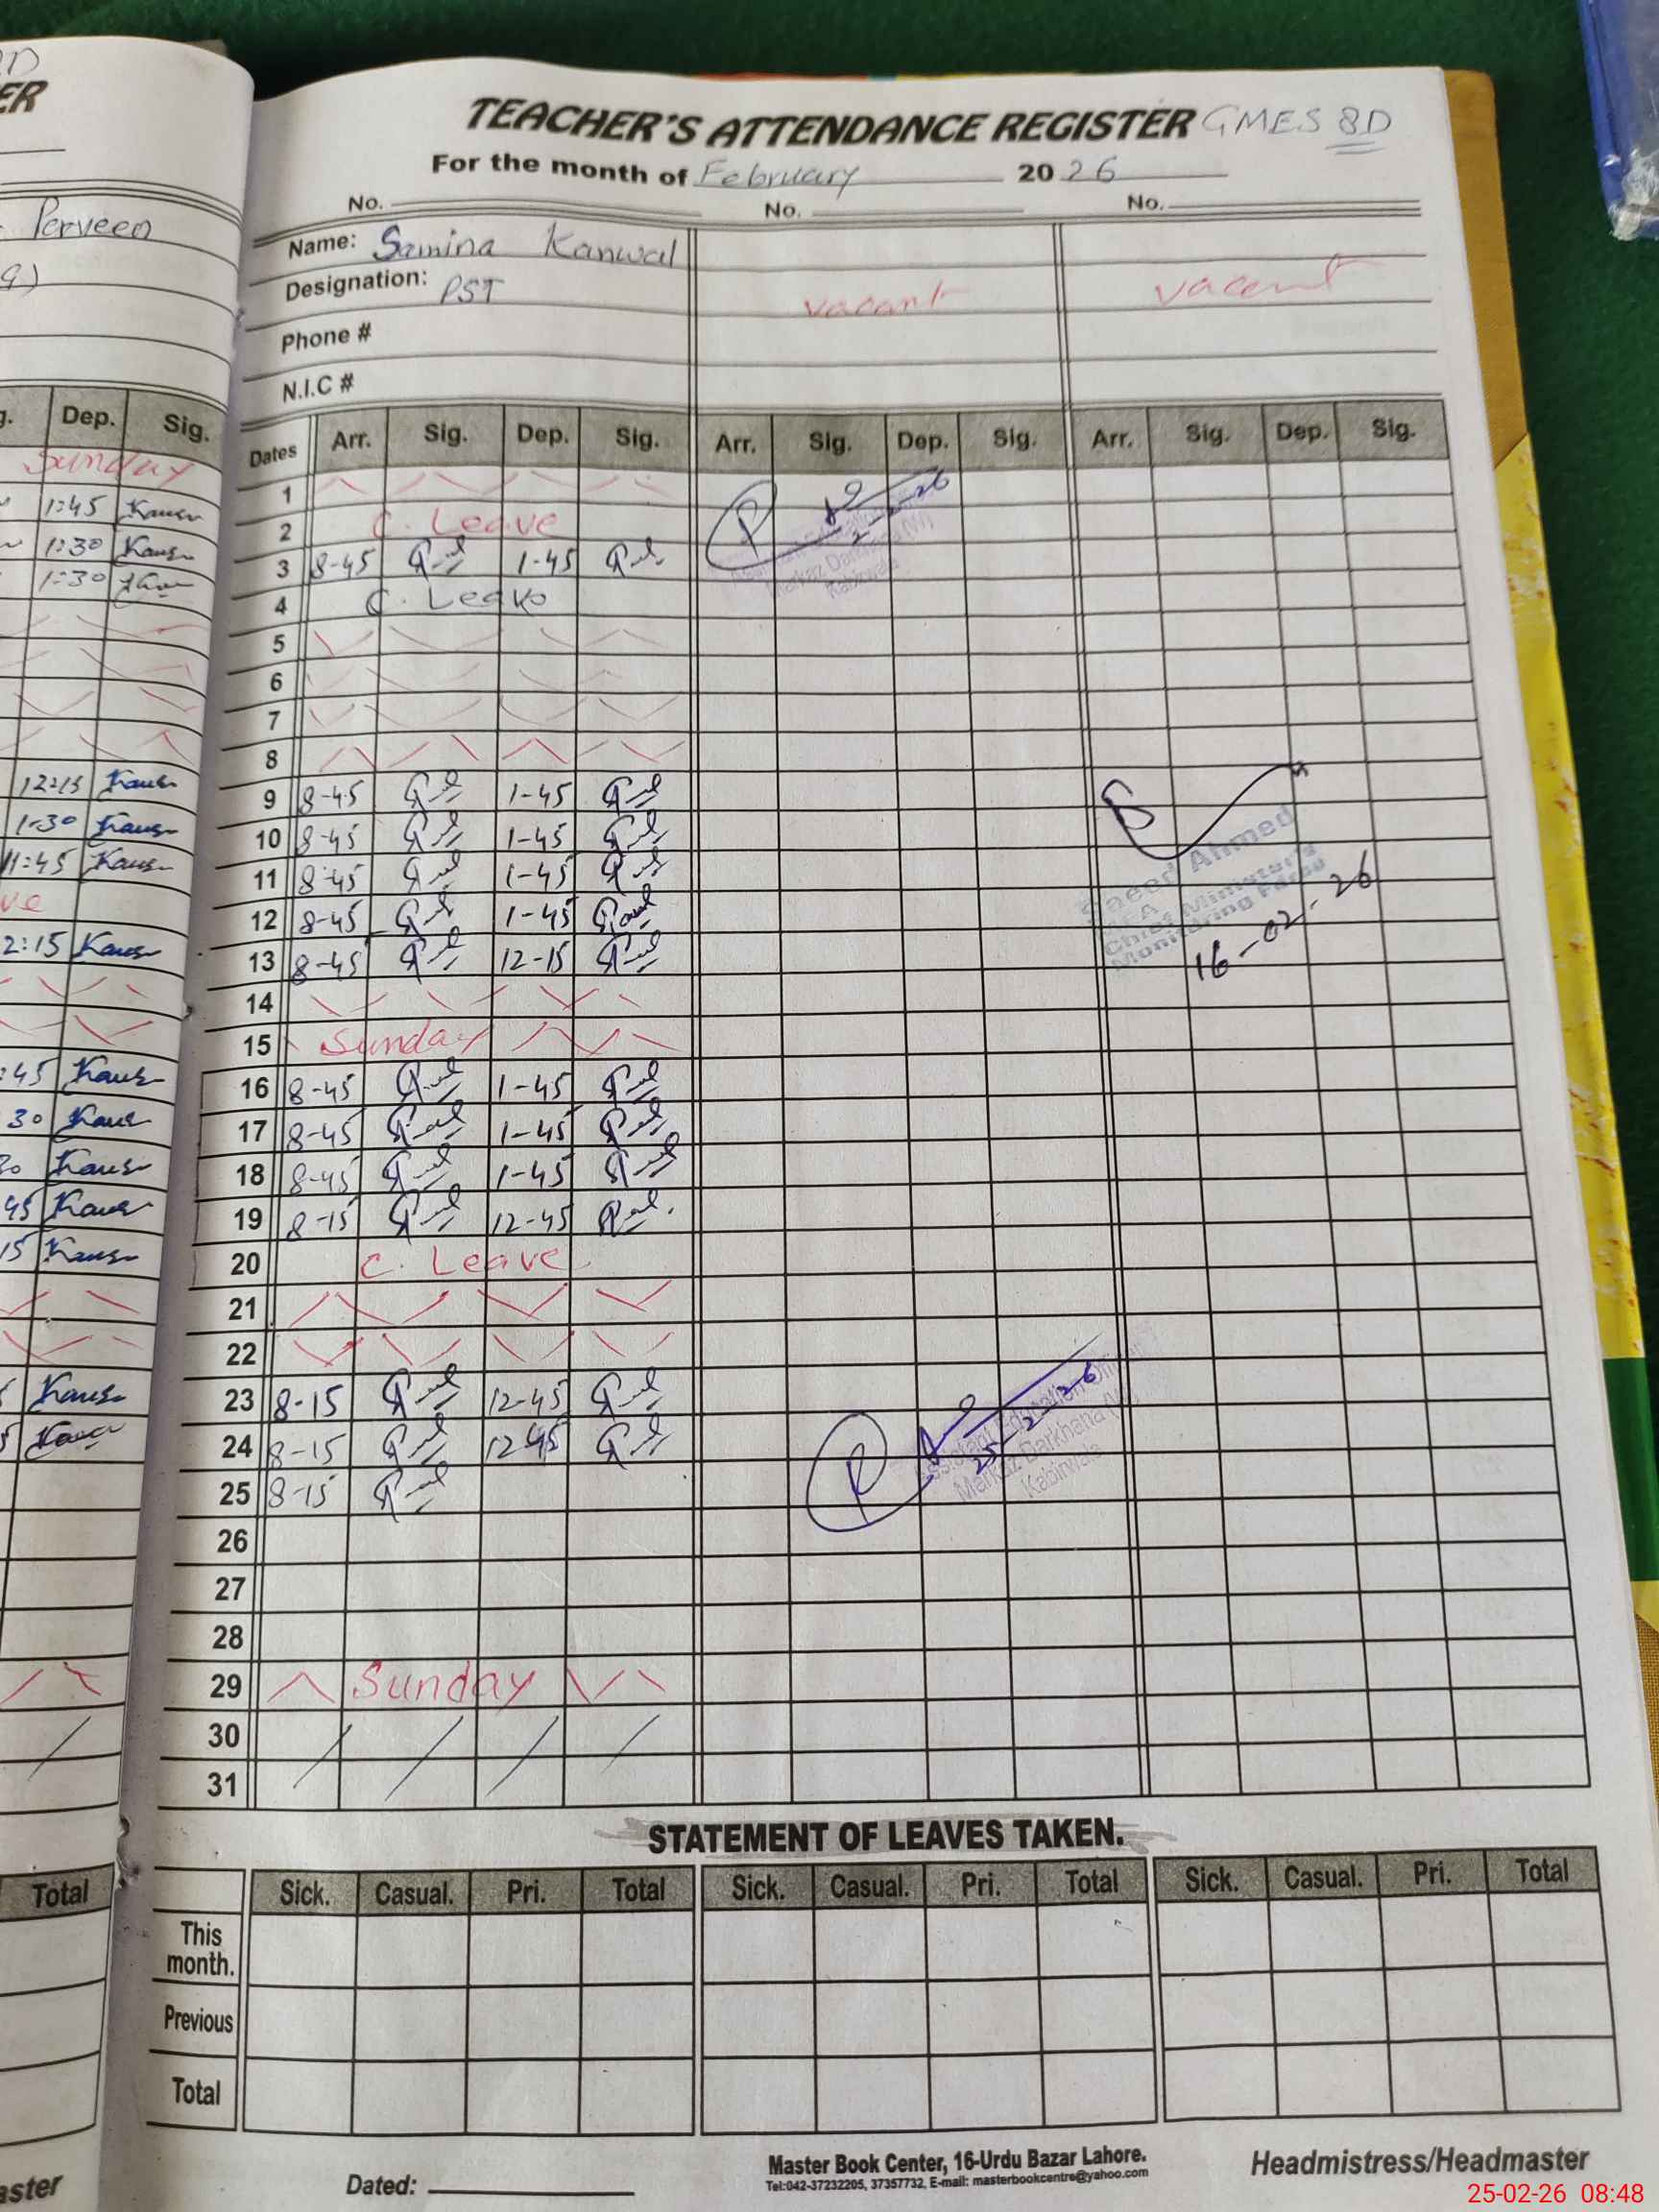 TEACHER'S ATTENDANCE REGISTER GMES 8D
For the month of February 2026
No. No. No.
Name: Samina Kanwal
Designation: PST vacant vacant
Phone #
N.I.C #
Dates Arr. Sig. Dep. Sig. Arr. Sig. Dep. Sig. Arr. Sig. Dep. Sig.
1
2 C. Leave
3 8-45 1-45
4 C. Leave
5
6
7
8
9 8-45 1-45
10 8-45 1-45
11 8-45 1-45
12 8-45 1-45
13 8-45 12-15
14
15 Sunday
16 8-45 1-45
17 8-45 1-45
18 8-45 1-45
19 8-15 12-45
20 C. Leave
21
22
23 8-15 12-45
24 8-15 12-45
25 8-15
26
27
28
29 Sunday
30
31
Markaz Darkhana (W)
Kabirwala
Saeed Ahmed
Chief Minister's
Monitoring Force
16-02-26
Assistant Education Officer
25-2-26
Markaz Darkhana (W)
Kabirwala
STATEMENT OF LEAVES TAKEN.
Sick. Casual. Pri. Total Sick. Casual. Pri. Total Sick. Casual. Pri. Total
This month.
Previous
Total
Dated:
Master Book Center, 16-Urdu Bazar Lahore.
Tel:042-37232205, 37357732, E-mail: masterbookcentre@yahoo.com
Headmistress/Headmaster
ER
Perveen
Dep. Sig.
Sunday
1:45 Kausr
1:30 Kausr
1:30
12:15 Kausr
1:30 Kausr
11:45 Kausr
2:15 Kausr
:45 Kausr
30 Kausr
Kausr
45 Kausr
15 Kausr
Kausr
Kausr
Total
25-02-26 08:48